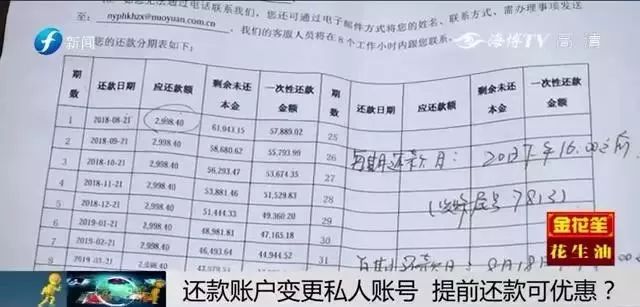 您还可通过电子邮件方式将您的姓名、联系方式、需办理事项发送
至: nyphkhzx@nuoyuan.com.cn,我们的客服人员将在8个工作小时内跟您联系。
新闻
海博TV 高清
您的还款分期表如下:
期数 还款日期 应还款额 剩余未还本金 一次性还款金额 期数 还款日期 应还款额 剩余未还本金 一次性还款金额
1 2018-08-21 2,998.40 61,043.15 57,889.02 25
2 2018-09-21 2,998.40 58,680.62 55,793.99 26
3 2018-10-21 2,998.40 56,293.47 53,674.35 27
4 2018-11-21 2,998.40 53,881.46 51,529.83 28
5 2018-12-21 2,998.40 51,444.33 49,360.20 29
6 2019-01-21 2,998.40 48,981.81 47,165.18 30
7 2019-02-21 2,998.40 46,493.64 44,944.52 31
2,998.40
金花笙
花生油
还款账户变更私人账号 提前还款可优惠?